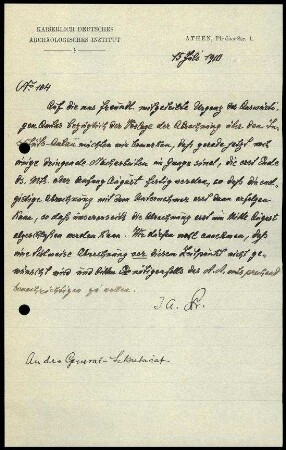 KAISERLICH DEUTSCHES
ARCHÄOLOGISCHES INSTITUT
ATHEN, Phidias-Str. 1.
15 Juli 1910
No 104
Auf die uns freundl. mitgeteilte Anfrage des Auswärti-
gen Amtes bezüglich der Vorlage der Abrechnung über den
möchten wir bemerken, daß gerade jetzt noch
einige dringende Arbeiten im Gange sind, die erst Ende
d. Mts. oder Anfang August fertig werden, so daß die end-
gültige Abrechnung mit dem Unternehmer erst dann erfolgen
kann, so daß unsererseits die Abrechnung erst um Mitte August
abgeschlossen werden kann. Wir dürfen wohl annehmen, daß
eine teilweise Abrechnung vor diesem Zeitpunkt nicht ge-
wünscht wird und bitten Sie nötigenfalls das A.A. entsprechend
benachrichtigen zu wollen.
I A.
An das General-Sekretariat.